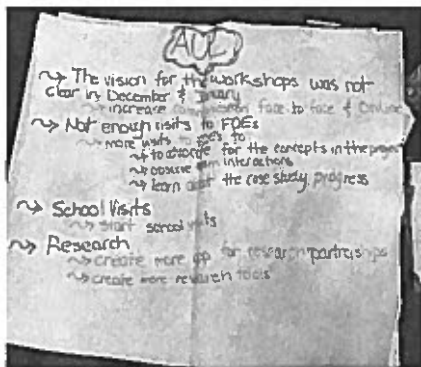 AUC
~> The vision for the workshops was not
clear in December & January
~> increase face to face & Online
~> Not enough visits to FOEs
~> more visits to FOE's to
~> to advocate for the concepts in the project
~> observe interactions
~> learn about the case study progress
~> School Visits
~> start school visits
~> Research
~> create more opp for research partnerships
~> create more research tools